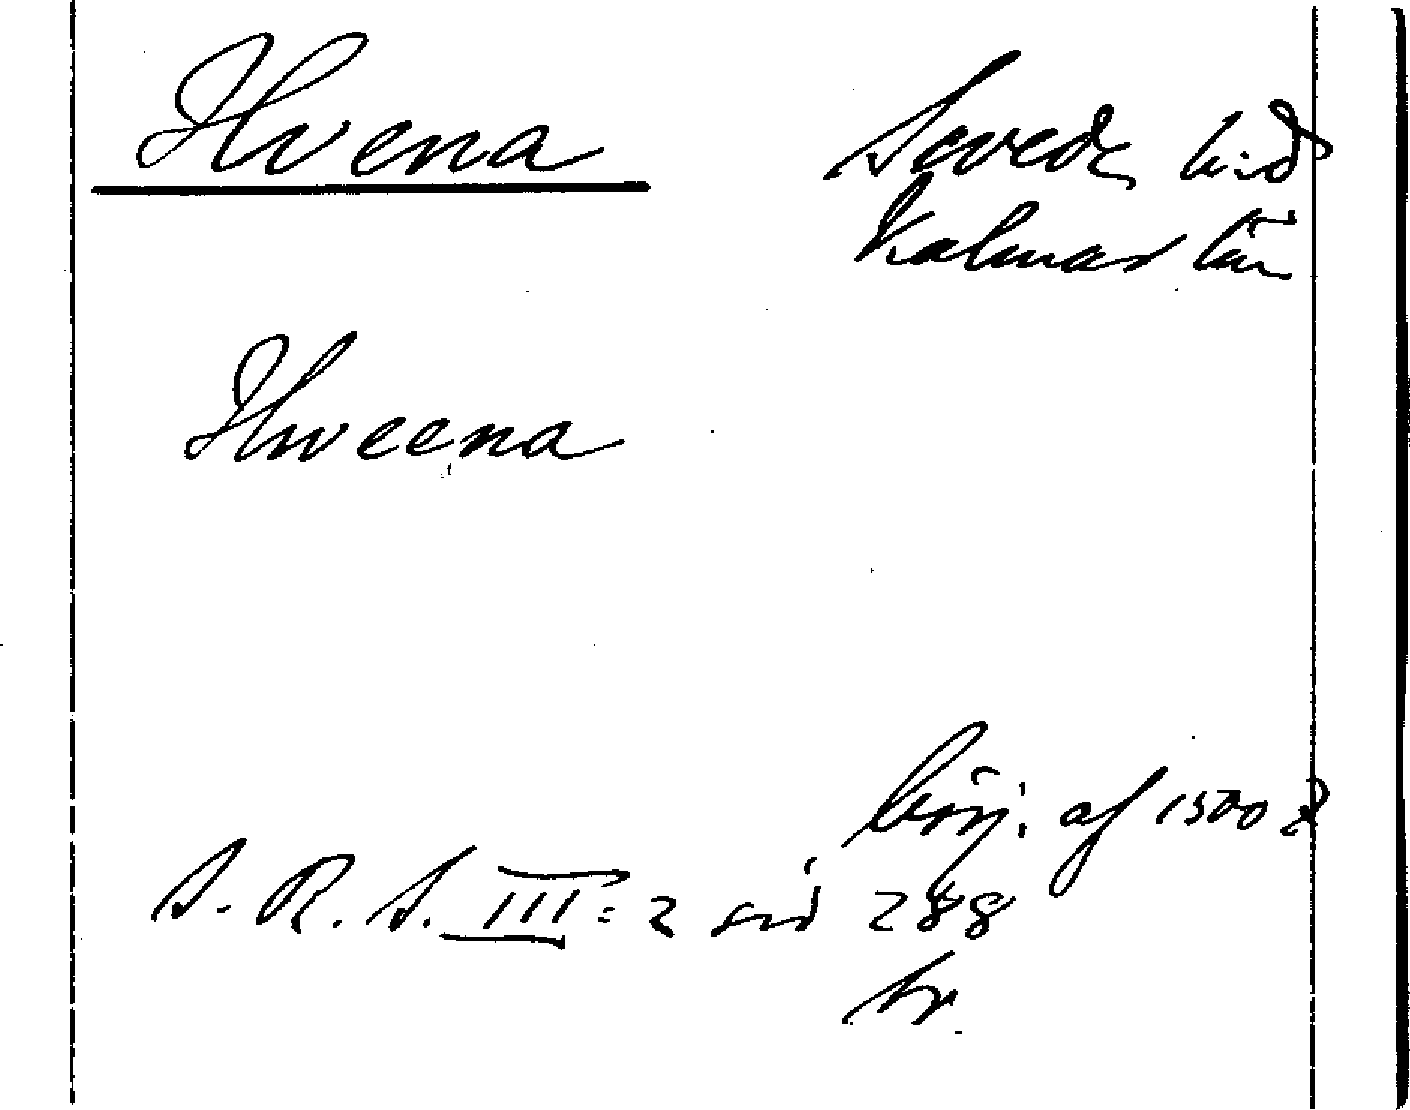 Hvena
Sevede hd
Kalmar län
Hweena
börj. af 1500 t
S. R. S. III: 2 sid 288
tr.